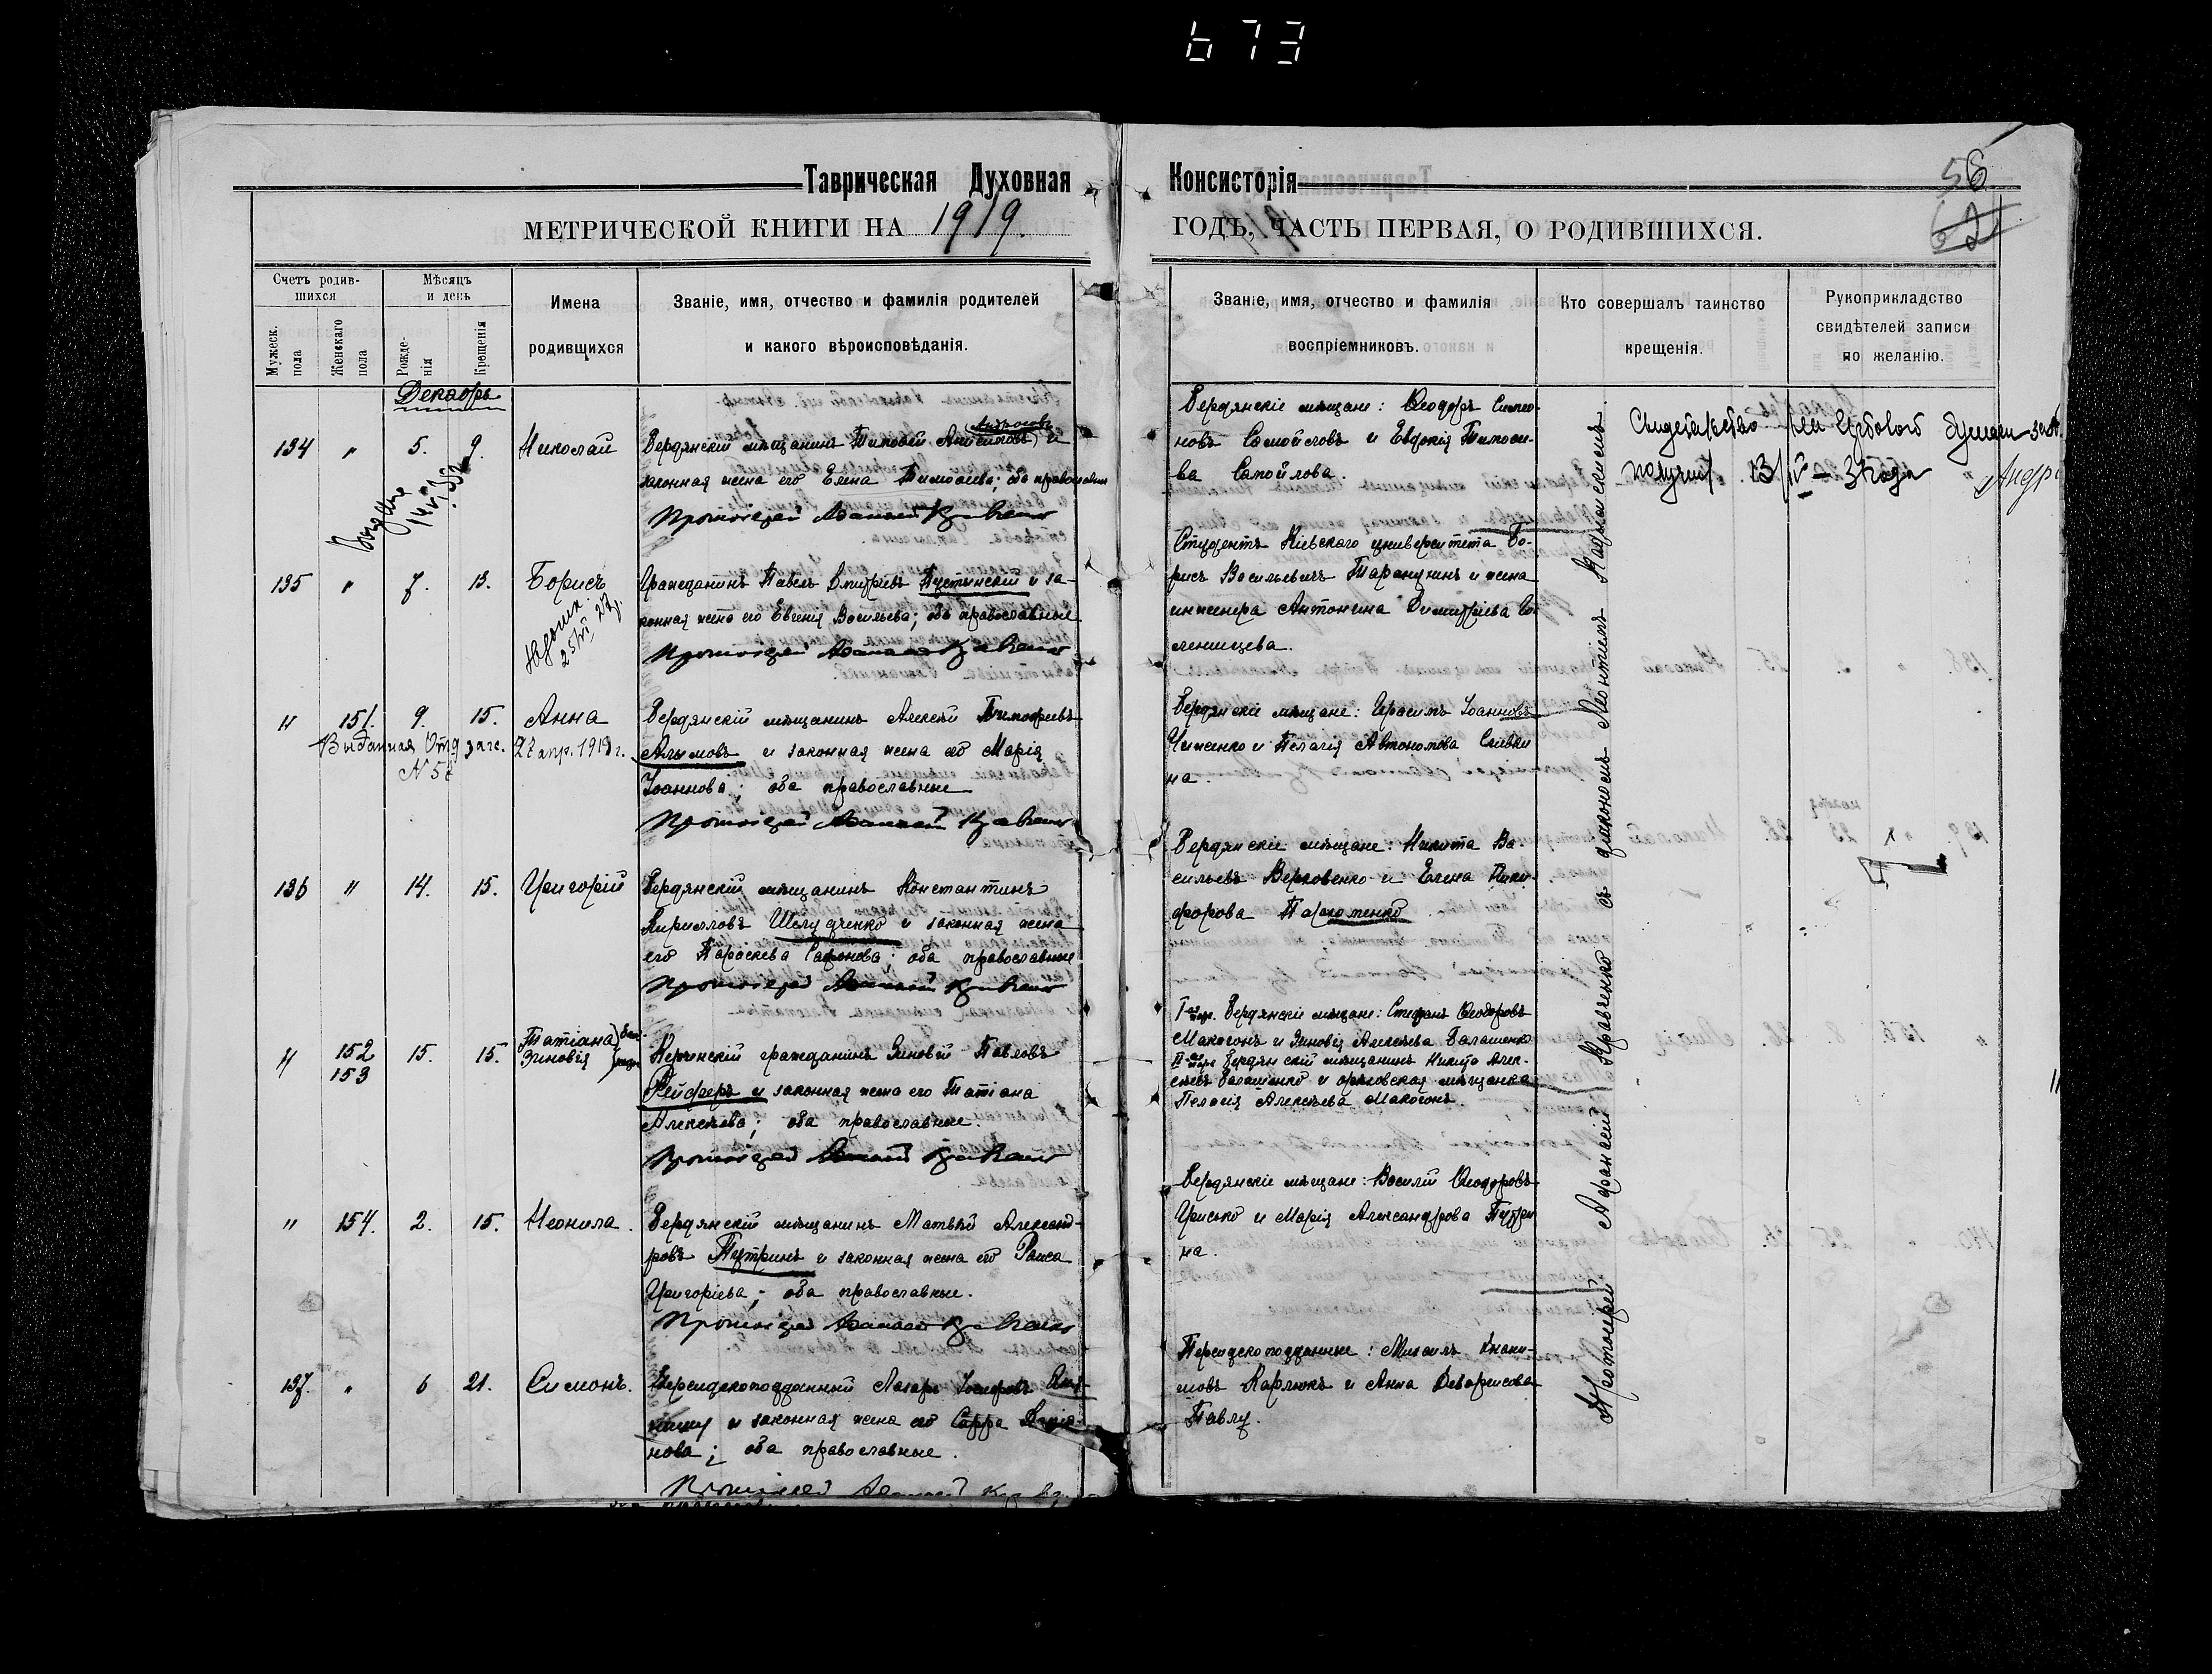 673
Таврическая Духовная Консисторія
56
62
МЕТРИЧЕСКОЙ КНИГИ НА 1919. ГОДЪ, ЧАСТЬ ПЕРВАЯ, О РОДИВШИХСЯ.
Счетъ родив-
шихся
Мужеск.
пола
Женскаго
пола
Мѣсяцъ
и день
Рожде-
нія
Крещенія
Имена
родившихся
Званіе, имя, отчество и фамилія родителей
и какого вѣроисповѣданія.
Званіе, имя, отчество и фамилія
воспріемниковъ.
Кто совершалъ таинство
крещенія.
Рукоприкладство
свидѣтелей записи
по желанію.
Декабрь
134 " 5. 9. Николай
Бердянскій мѣщанинъ и
законная жена его Елена Тимоѳеева; оба православные
Протоіерей Аѳанасій Кравченко
Бердянскіе мѣщане: Ѳеодоръ Симео-
новъ Самойловъ и Евдокія
ва Самойлова.
Свидетельство
получил 13/IV – 37 года
135 " 7. 13. Борисъ
25/VI 27г.
Гражданинъ Павелъ Дмитріевъ Пустынскій и за-
конная жена его Евгенія Васильева; оба православные
Протоіерей Аѳанасій Кравченко
Студентъ Кіевскаго университета Бо-
рисъ Васильевичъ Таранухинъ и жена
инженера Антонина Димитріева Го
ленищева.
" 151. 9. 15. Анна
27 апр. 1919 г.
Бердянскій мѣщанинъ Алексѣй Тимофеевъ
Алымовъ и законная жена его Марія
Іоаннова; оба православные
Протоіерей Аѳанасій Кравченко
Бердянскіе мѣщане: Герасимъ Іоанновъ
Чиженко и Пелагія Автономова Сливки
на.
136 " 14. 15. Григорій
Бердянскій мѣщанинъ Константинъ
Кирилловъ Шелудченко и законная жена
его Параскева Сафонова; оба православные
Протоіерей Аѳанасій Кравченко
Бердянскіе мѣщане: Никита Ва-
сильевъ Верховенко и Елена Ники-
форова Пархоменко
" 152 15. 15. Татіана
153 Зиновія
Керчинскій гражданинъ Зиновій Павловъ
Рейферъ и законная жена его Татіана
Алексѣева; оба православные.
Протоіерей Аѳанасій Кравченко
Бердянскіе мѣщане: Стефанъ Ѳеодоровъ
Макогонъ и Зиновія Алексѣева Балашенко
Бердянскій мѣщанинъ Никита Алек-
сѣевъ Балашенко и орѣховская мѣщанка
Пелагія Алексѣева Макогонъ.
" 154. 2. 15. Неонила.
Бердянскій мѣщанинъ Матвѣй Александ-
ровъ Путринъ и законная жена его Раиса
Григоріева; оба православные.
Протоіерей Аѳанасій Кравченко
Бердянскіе мѣщане: Василій Ѳеодоровъ
Грисько и Марія Александрова Путри
на.
137. " 6 21. Симонъ.
Персидскоподданный Лазарь Іосифовъ
и законная жена его Сарра
нова; оба православные.
Протоіерей Аѳанасій
Персидскоподданные: Михаилъ
мовъ Карлюкъ и Анна
Павлу.
Протоіерей Аѳанасій Кравченко съ діакономъ Леонтіемъ